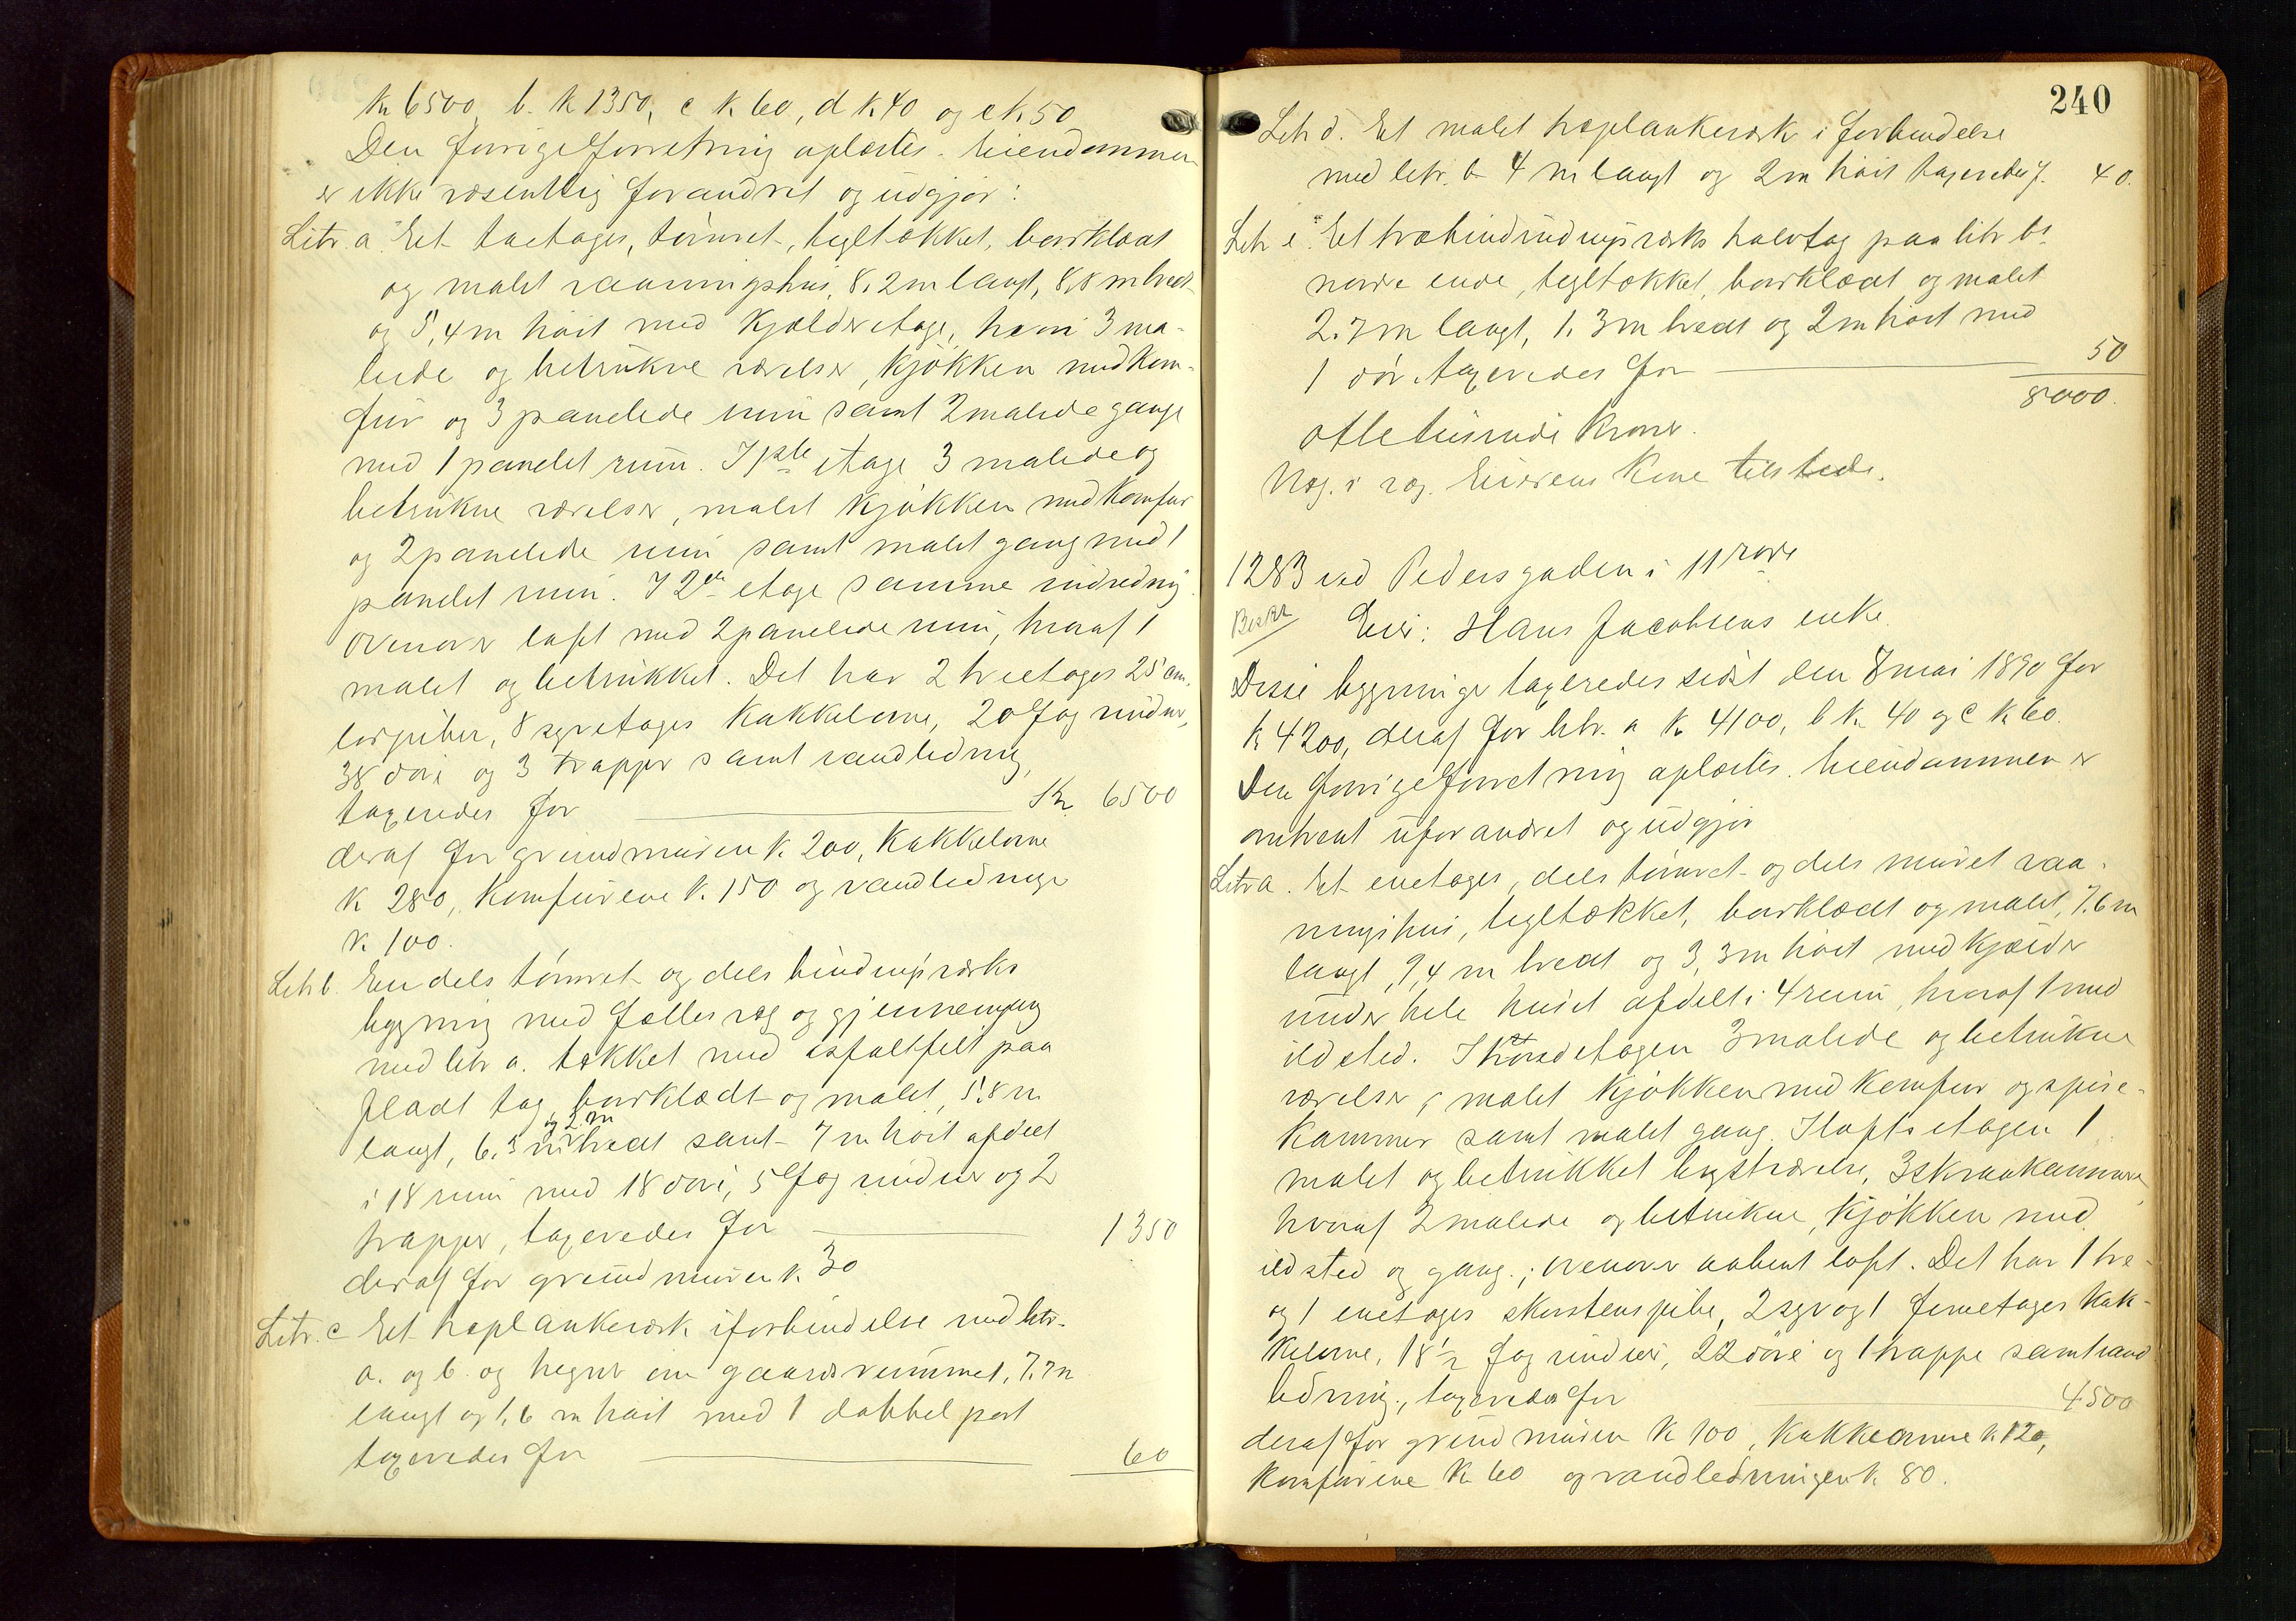 Kr 6500, b. k 1350, c k 60, d k. 40 og e k. 50
Den forrige forretning oplæstes. Eiendommen
er ikke væsentlig forandret og udgjør:
Litr. a. Et toetages, tømret, tegltækket, bordklædt
og malet vaaningshus, 8,2 m langt, 8,8 m bredt
og 5,4 m høit med kjælderetage, hvori 3 ma-
lede og betrukne værelser, kjøkken med kom-
fur og 3 panelede rum samt 2 malede gange
med 1 panelet rum. I 1ste etage 3 malede og
betrukne værelser, malet kjøkken med komfur
og 2 panelede rum samt malet gang med 1
panelet rum. I 2den etage samme indredning
ovenover loft med 2 panelede rum, hvoraf 1
malet og betrukket. Det har 2 treetages 25 cm.
lerpiber, 8 syvetages kakkelovne, 20 fag vinduer,
38 døre og 3 trapper samt vandledning,
taxeredes for Kr. 6500
deraf for grundmuren k. 200, kakkelovne
k 280, komfurene k. 150 og vandledninge
k 100.
Litr b. En dels tømret og dels bindingsværks
bygning med fælles væg og gjennemgang
med litr a. tækket med asfaltfilt paa
fladt tag, bordklædt og malet, 5,8 m
langt, 6,3 m og 2 m bredt samt 7 m høit afdelt
i 18 rum med 18 døre, 5 fag vinduer og 2
trapper, taxeredes for 1350
deraf for grundmuren k. 30
Litr. c Et træplankeværk i forbindelse med litr.
a. og b. og hegner om gaardsrummet, 7,7 m
langt og 1,6 m høit med 1 dobbel port
taxeredes for 60
240
Litr d. Et malet træplankeværk i forbindelse
med litr. b 4 m langt og 2 m høit taxeredes f. 40.
Litr e. Et træbindindingsværks halvtag paa litr bs
nordre ende, tegltækket, bordklædt og malet
2.7 m langt, 1.3 m bredt og 2 m høit med
1 dør taxeredes for 50
8000.
otte tusinde kroner.
Næg. i væg. Eierens kone tilstede.
1283 ved Pedersgaden i 11 rode
Eier: Hans Jacobsens enke.
Disse bygninger taxeredes sidst den 8 mai 1890 for
k 4200, deraf for litr. a k 4100, b k. 40 og c k 60.
Den forrige forretning oplæstes. Eiendommen er
omtrent uforandret og udgjør
Litr a. Et enetages, dels tømret og dels muret vaa-
ningshus, tegltækket, bordklædt og malet, 7.6 m
langt, 9,4 m bredt og 3,3 m høit med kjælder
under hele huset afdelt i 4 rum, hvoraf 1 med
ildsted. I hovedetagen 3 malede og betrukne
værelser, malet kjøkken med komfur og spise-
kammer samt malet gang. I loftsetagen 1
malet og betrukket kvistværelse, 3 skraakammere
hvoraf 2 malede og betrukne, kjøkken med
ildsted og gang; ovenover aabent loft. Det har 1 tre-
og 1 enetages skorstenspibe, 2 syv og 1 femetages kak-
kelovne, 18 1/2 fag vinduer, 22 døre og 1 trappe samt vand
ledning, taxeredes for 4500
deraf for grundmuren k 100, kakkelovnene k. 120,
komfurene k 60 og vandledningen k. 80.